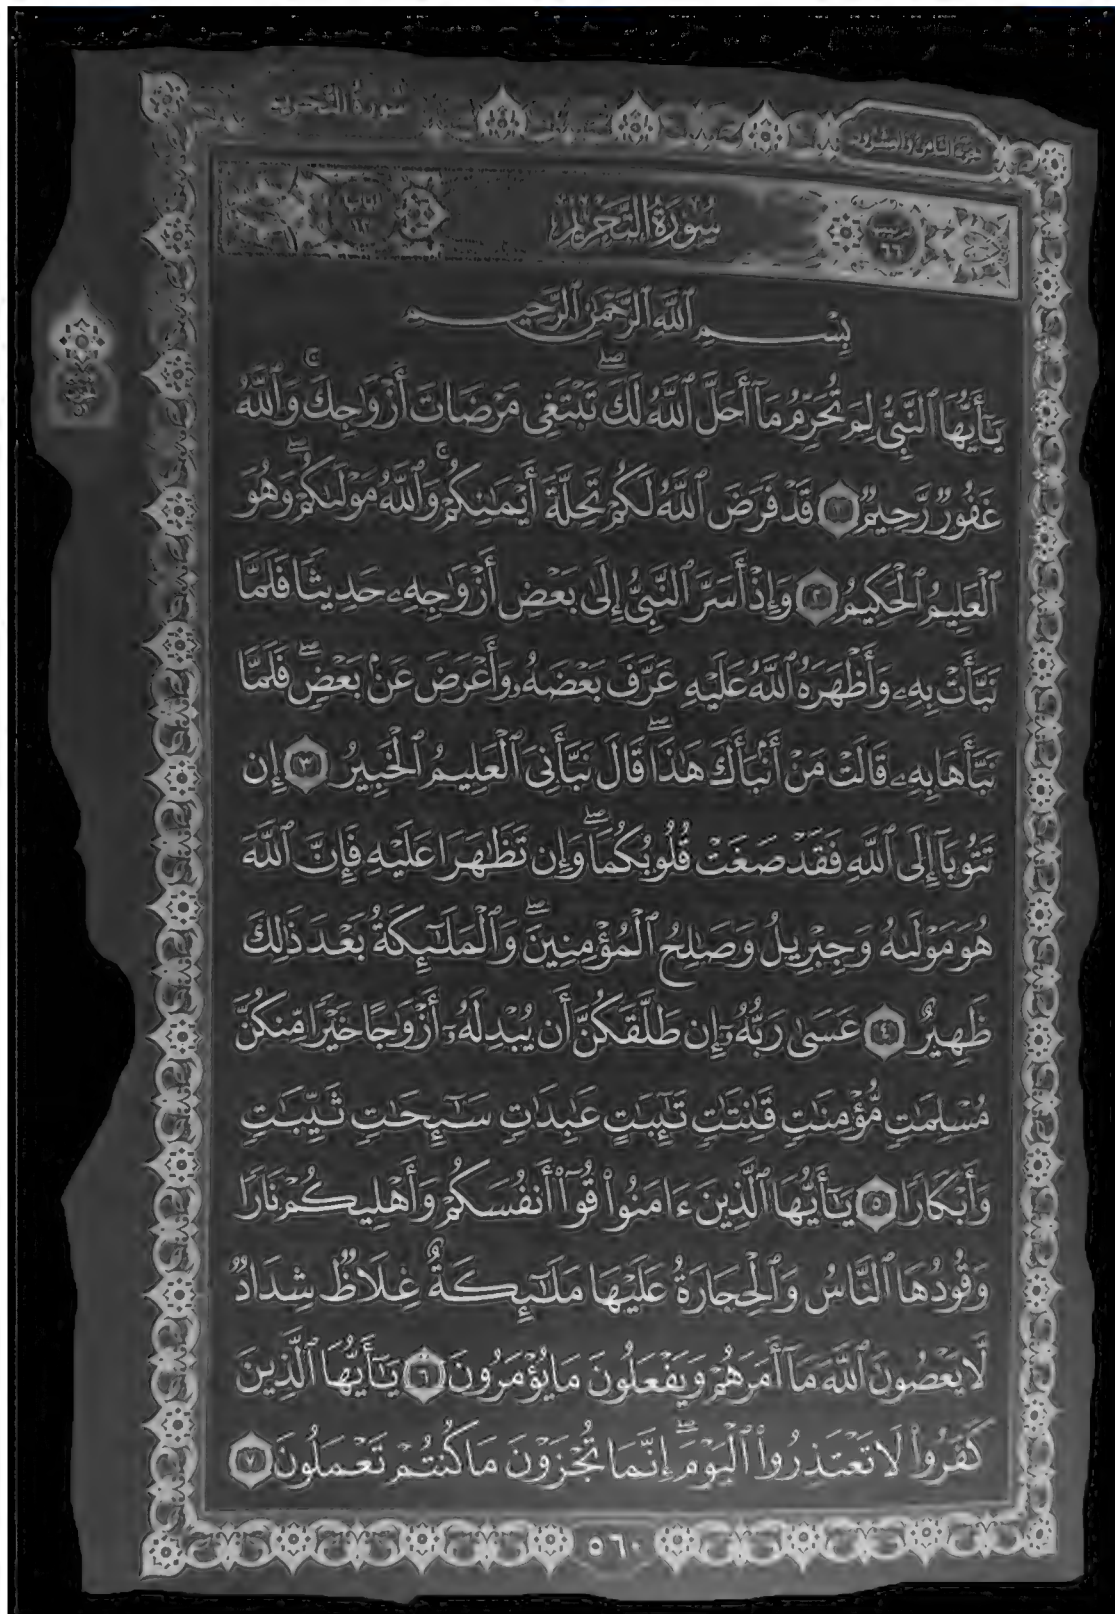 سُورَةُ التَّحْرِيمِ
الجزء الثامن والعشرون
سُورَةُ التَّحْرِيمِ
آياتها
١٢
ترتيبها
٦٦
بِسْمِ ٱللَّهِ ٱلرَّحْمَٰنِ ٱلرَّحِيمِ
يَٰٓأَيُّهَا ٱلنَّبِيُّ لِمَ تُحَرِّمُ مَآ أَحَلَّ ٱللَّهُ لَكَۖ تَبْتَغِي مَرْضَاتَ أَزْوَٰجِكَۚ وَٱللَّهُ
غَفُورٌ رَّحِيمٌ ١ قَدْ فَرَضَ ٱللَّهُ لَكُمْ تَحِلَّةَ أَيْمَٰنِكُمْۚ وَٱللَّهُ مَوْلَىٰكُمْۖ وَهُوَ
ٱلْعَلِيمُ ٱلْحَكِيمُ ٢ وَإِذْ أَسَرَّ ٱلنَّبِيُّ إِلَىٰ بَعْضِ أَزْوَٰجِهِۦ حَدِيثًا فَلَمَّا
نَبَّأَتْ بِهِۦ وَأَظْهَرَهُ ٱللَّهُ عَلَيْهِ عَرَّفَ بَعْضَهُۥ وَأَعْرَضَ عَنۢ بَعْضٍۖ فَلَمَّا
نَبَّأَهَا بِهِۦ قَالَتْ مَنْ أَنۢبَأَكَ هَٰذَاۖ قَالَ نَبَّأَنِيَ ٱلْعَلِيمُ ٱلْخَبِيرُ ٣ إِن
تَتُوبَآ إِلَى ٱللَّهِ فَقَدْ صَغَتْ قُلُوبُكُمَاۖ وَإِن تَظَٰهَرَا عَلَيْهِ فَإِنَّ ٱللَّهَ
هُوَ مَوْلَىٰهُ وَجِبْرِيلُ وَصَٰلِحُ ٱلْمُؤْمِنِينَۖ وَٱلْمَلَٰٓئِكَةُ بَعْدَ ذَٰلِكَ
ظَهِيرٌ ٤ عَسَىٰ رَبُّهُۥٓ إِن طَلَّقَكُنَّ أَن يُبْدِلَهُۥٓ أَزْوَٰجًا خَيْرًا مِّنكُنَّ
مُسْلِمَٰتٍ مُّؤْمِنَٰتٍ قَٰنِتَٰتٍ تَٰٓئِبَٰتٍ عَٰبِدَٰتٍ سَٰٓئِحَٰتٍ ثَيِّبَٰتٍ
وَأَبْكَارًا ٥ يَٰٓأَيُّهَا ٱلَّذِينَ ءَامَنُوا۟ قُوٓا۟ أَنفُسَكُمْ وَأَهْلِيكُمْ نَارًا
وَقُودُهَا ٱلنَّاسُ وَٱلْحِجَارَةُ عَلَيْهَا مَلَٰٓئِكَةٌ غِلَاظٌ شِدَادٌ
لَّا يَعْصُونَ ٱللَّهَ مَآ أَمَرَهُمْ وَيَفْعَلُونَ مَا يُؤْمَرُونَ ٦ يَٰٓأَيُّهَا ٱلَّذِينَ
كَفَرُوا۟ لَا تَعْتَذِرُوا۟ ٱلْيَوْمَۖ إِنَّمَا تُجْزَوْنَ مَا كُنتُمْ تَعْمَلُونَ ٧
٥٦٠